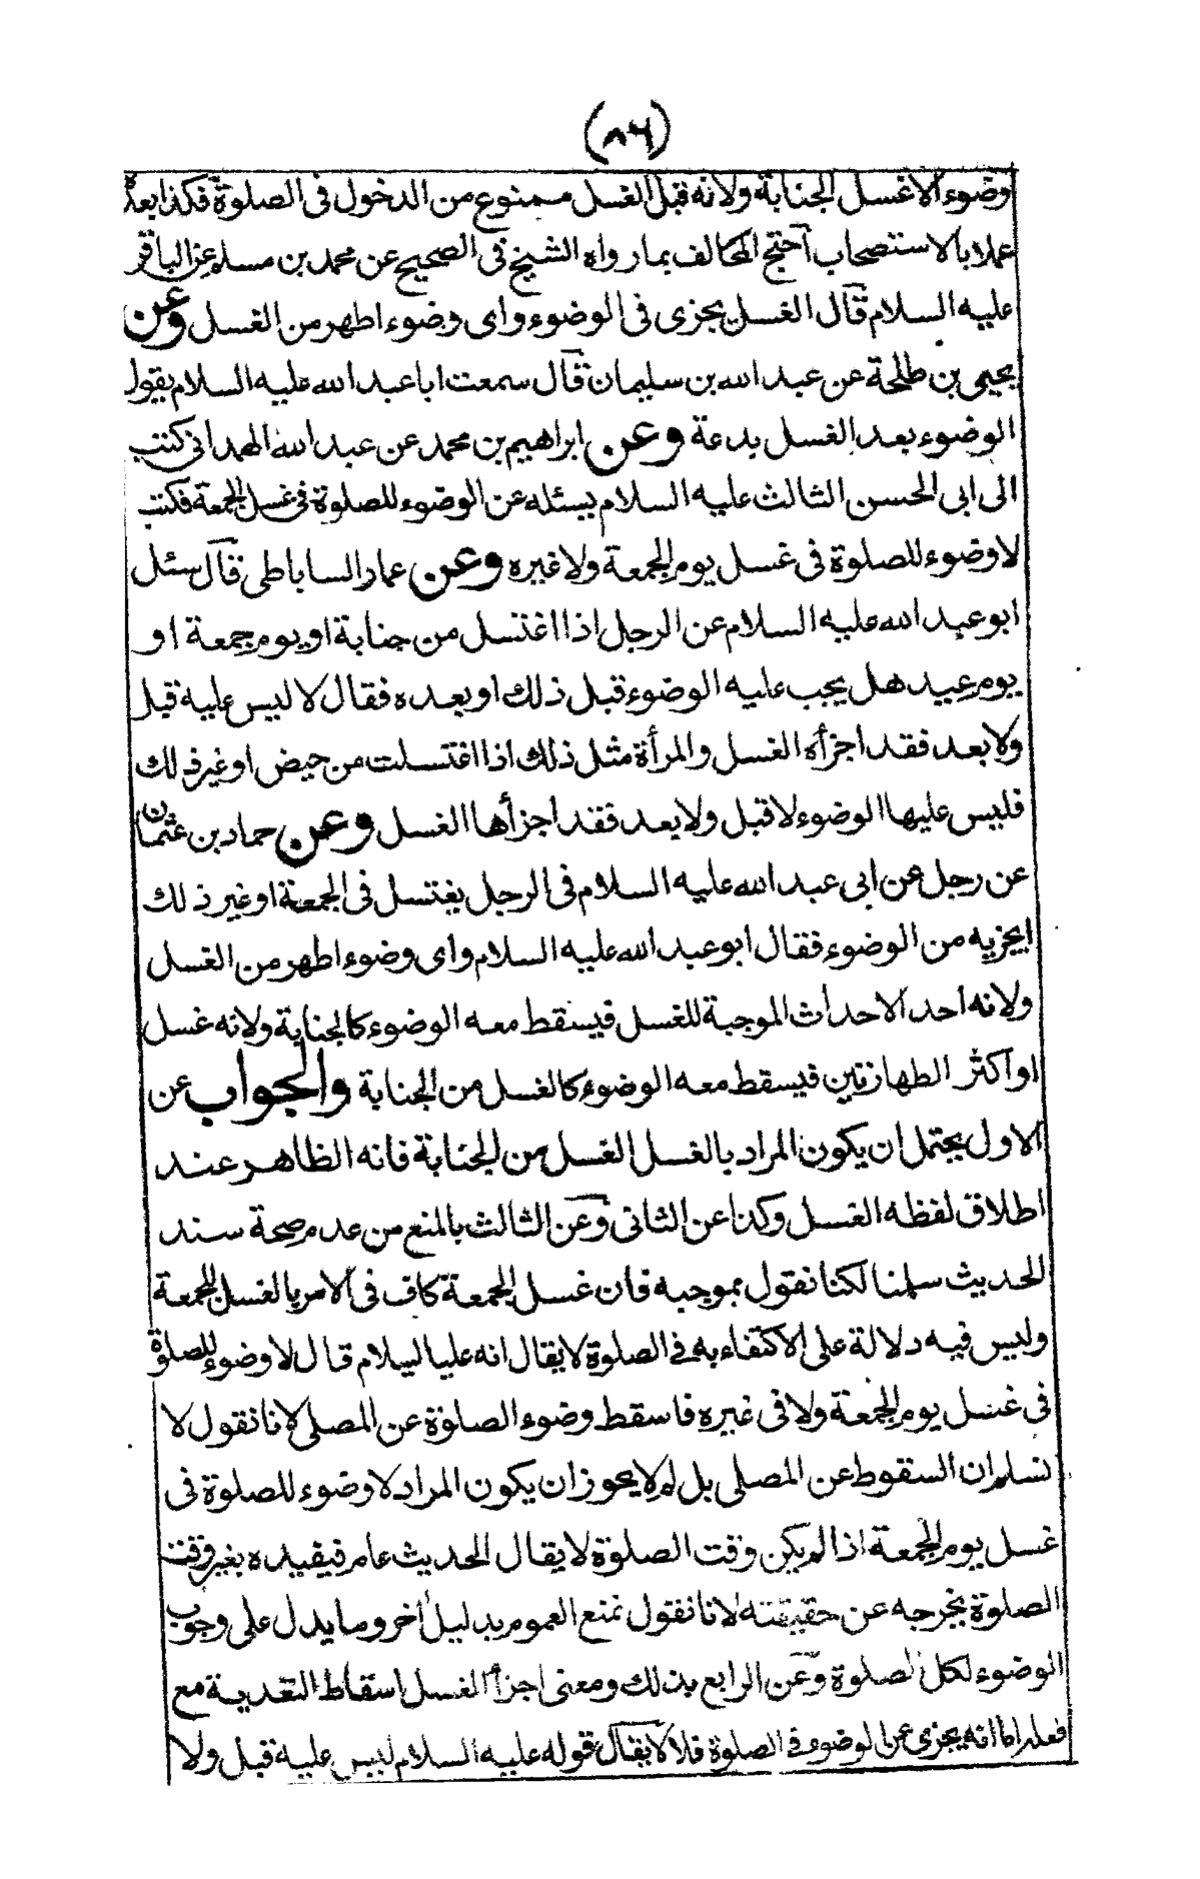 (٨٦)
وضوء الا غسل الجنابة ولانه قبل الغسل ممنوع من الدخول فى الصلوة فكذا بعده
عملا بالاستصحاب احتج المخالف بما رواه الشيخ فى الصحيح عن محمد بن مسلم عن الباقر
عليه السلام قال الغسل يجزى فى الوضوء واى وضوء اطهر من الغسل وعن
يحيى بن طلحة عن عبد الله بن سليمان قال سمعت ابا عبد الله عليه السلام يقول
الوضوء بعد الغسل بدعة وعن ابراهيم بن محمد عن عبد الله الهمدانى كتب
الى ابى الحسن الثالث عليه السلام يسئله عن الوضوء للصلوة فى غسل الجمعة فكتب
لا وضوء للصلوة فى غسل يوم الجمعة ولا غيره وعن عمار الساباطى قال سئل
ابو عبد الله عليه السلام عن الرجل اذا اغتسل من جنابة او يوم جمعة او
يوم عيد هل يجب عليه الوضوء قبل ذلك او بعده فقال لا ليس عليه قبل
ولا بعد فقد اجزأه الغسل والمرأة مثل ذلك اذا اغتسلت من حيض او غير ذلك
فليس عليها الوضوء لا قبل ولا بعد فقد اجزأها الغسل وعن حماد بن عثمان
عن رجل عن ابى عبد الله عليه السلام فى الرجل يغتسل فى الجمعة او غير ذلك
ايجزيه من الوضوء فقال ابو عبد الله عليه السلام واى وضوء اطهر من الغسل
ولانه احد الاحداث الموجبة للغسل فيسقط معه الوضوء كالجنابة ولانه غسل
او اكثر الطهارتين فيسقط معه الوضوء كالغسل من الجنابة والجواب عن
الاول يحتمل ان يكون المراد بالغسل الغسل من الجنابة فانه الظاهر عند
اطلاق لفظه الغسل وكذا عن الثانى وعن الثالث بالمنع من عدم صحة سند
الحديث سلمنا لكنا نقول بموجبه فان غسل الجمعة كاف فى الامر بالغسل للجمعة
وليس فيه دلالة على الاكتفاء به فى الصلوة لا يقال انه عليه السلام قال لا وضوء للصلوة
فى غسل يوم الجمعة ولا فى غيره فاسقط وضوء الصلوة عن المصلى لانا نقول لا
نسلم ان السقوط عن المصلى بل لم لا يجوز ان يكون المراد لا وضوء للصلوة فى
غسل يوم الجمعة اذا لم يكن وقت الصلوة لا يقال الحديث عام فيقيده بغير وقت
الصلوة يخرجه عن حقيقته لانا نقول نمنع العموم بدليل اخر وما يدل على وجوب
الوضوء لكل الصلوة وعن الرابع بذلك ومعنى اجزأ الغسل اسقاط التعدية مع
فعله اما انه يجزى عن الوضوء فى الصلوة فلا لا يقال قوله عليه السلام ليس عليه قبل ولا